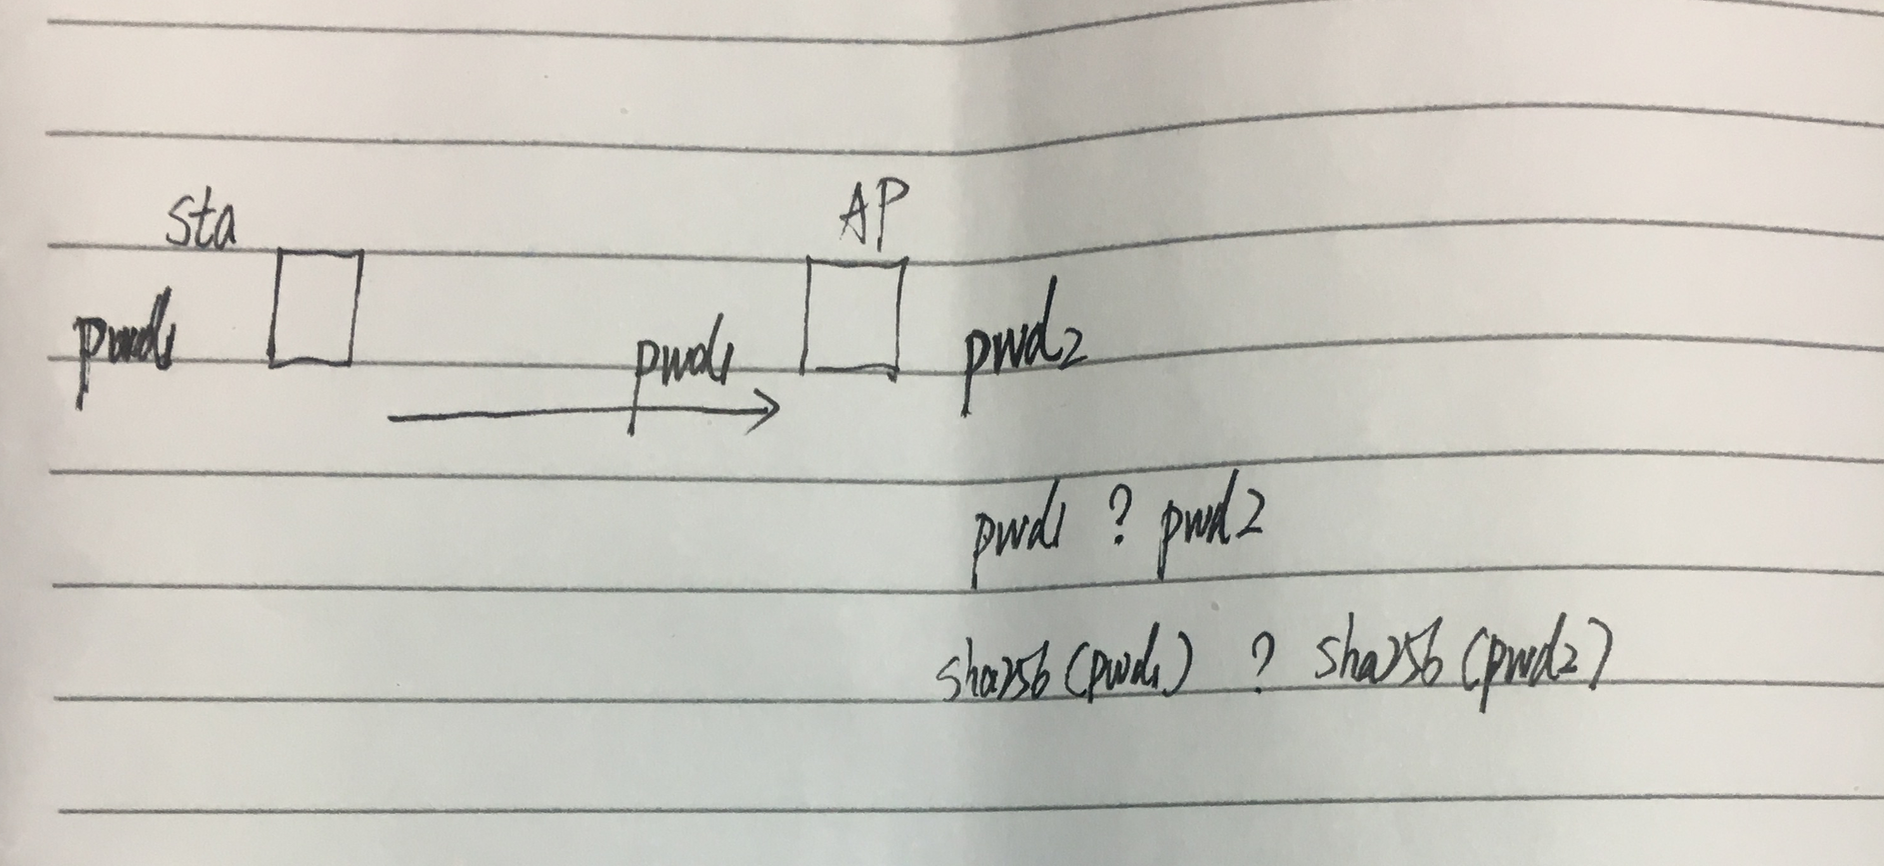 sta
AP
pwd1
pwd1
pwd2
pwd1 ? pwd2
sha256 (pwd1) ? sha256 (pwd2)